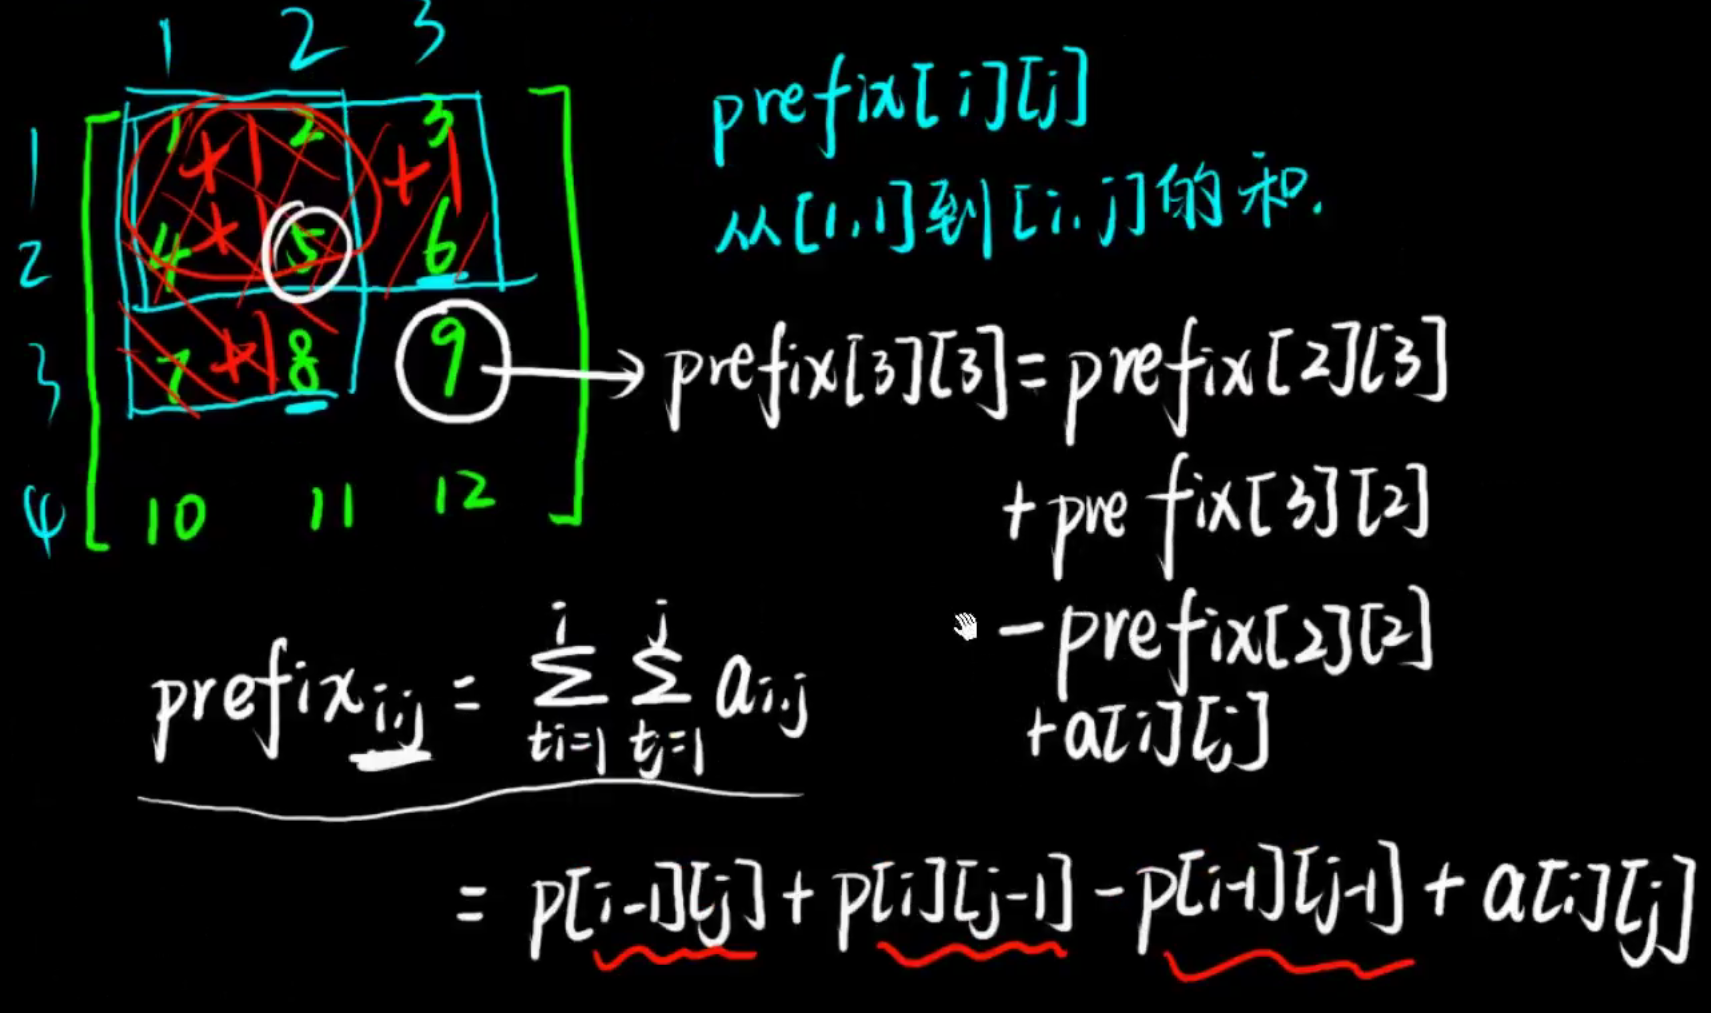 1 2 3
1 1 +1 2 3 +1
2 4 +1 5 6
3 7 +1 8 9
4 10 11 12
prefix[i][j]
从[1,1]到[i,j]的和.
prefix[3][3]=prefix[2][3]
+prefix[3][2]
-prefix[2][2]
+a[i][j]
prefix i,j = i∑ti=1 j∑tj=1 ai,j
= p[i-1][j]+p[i][j-1]-p[i-1][j-1]+a[i][j]